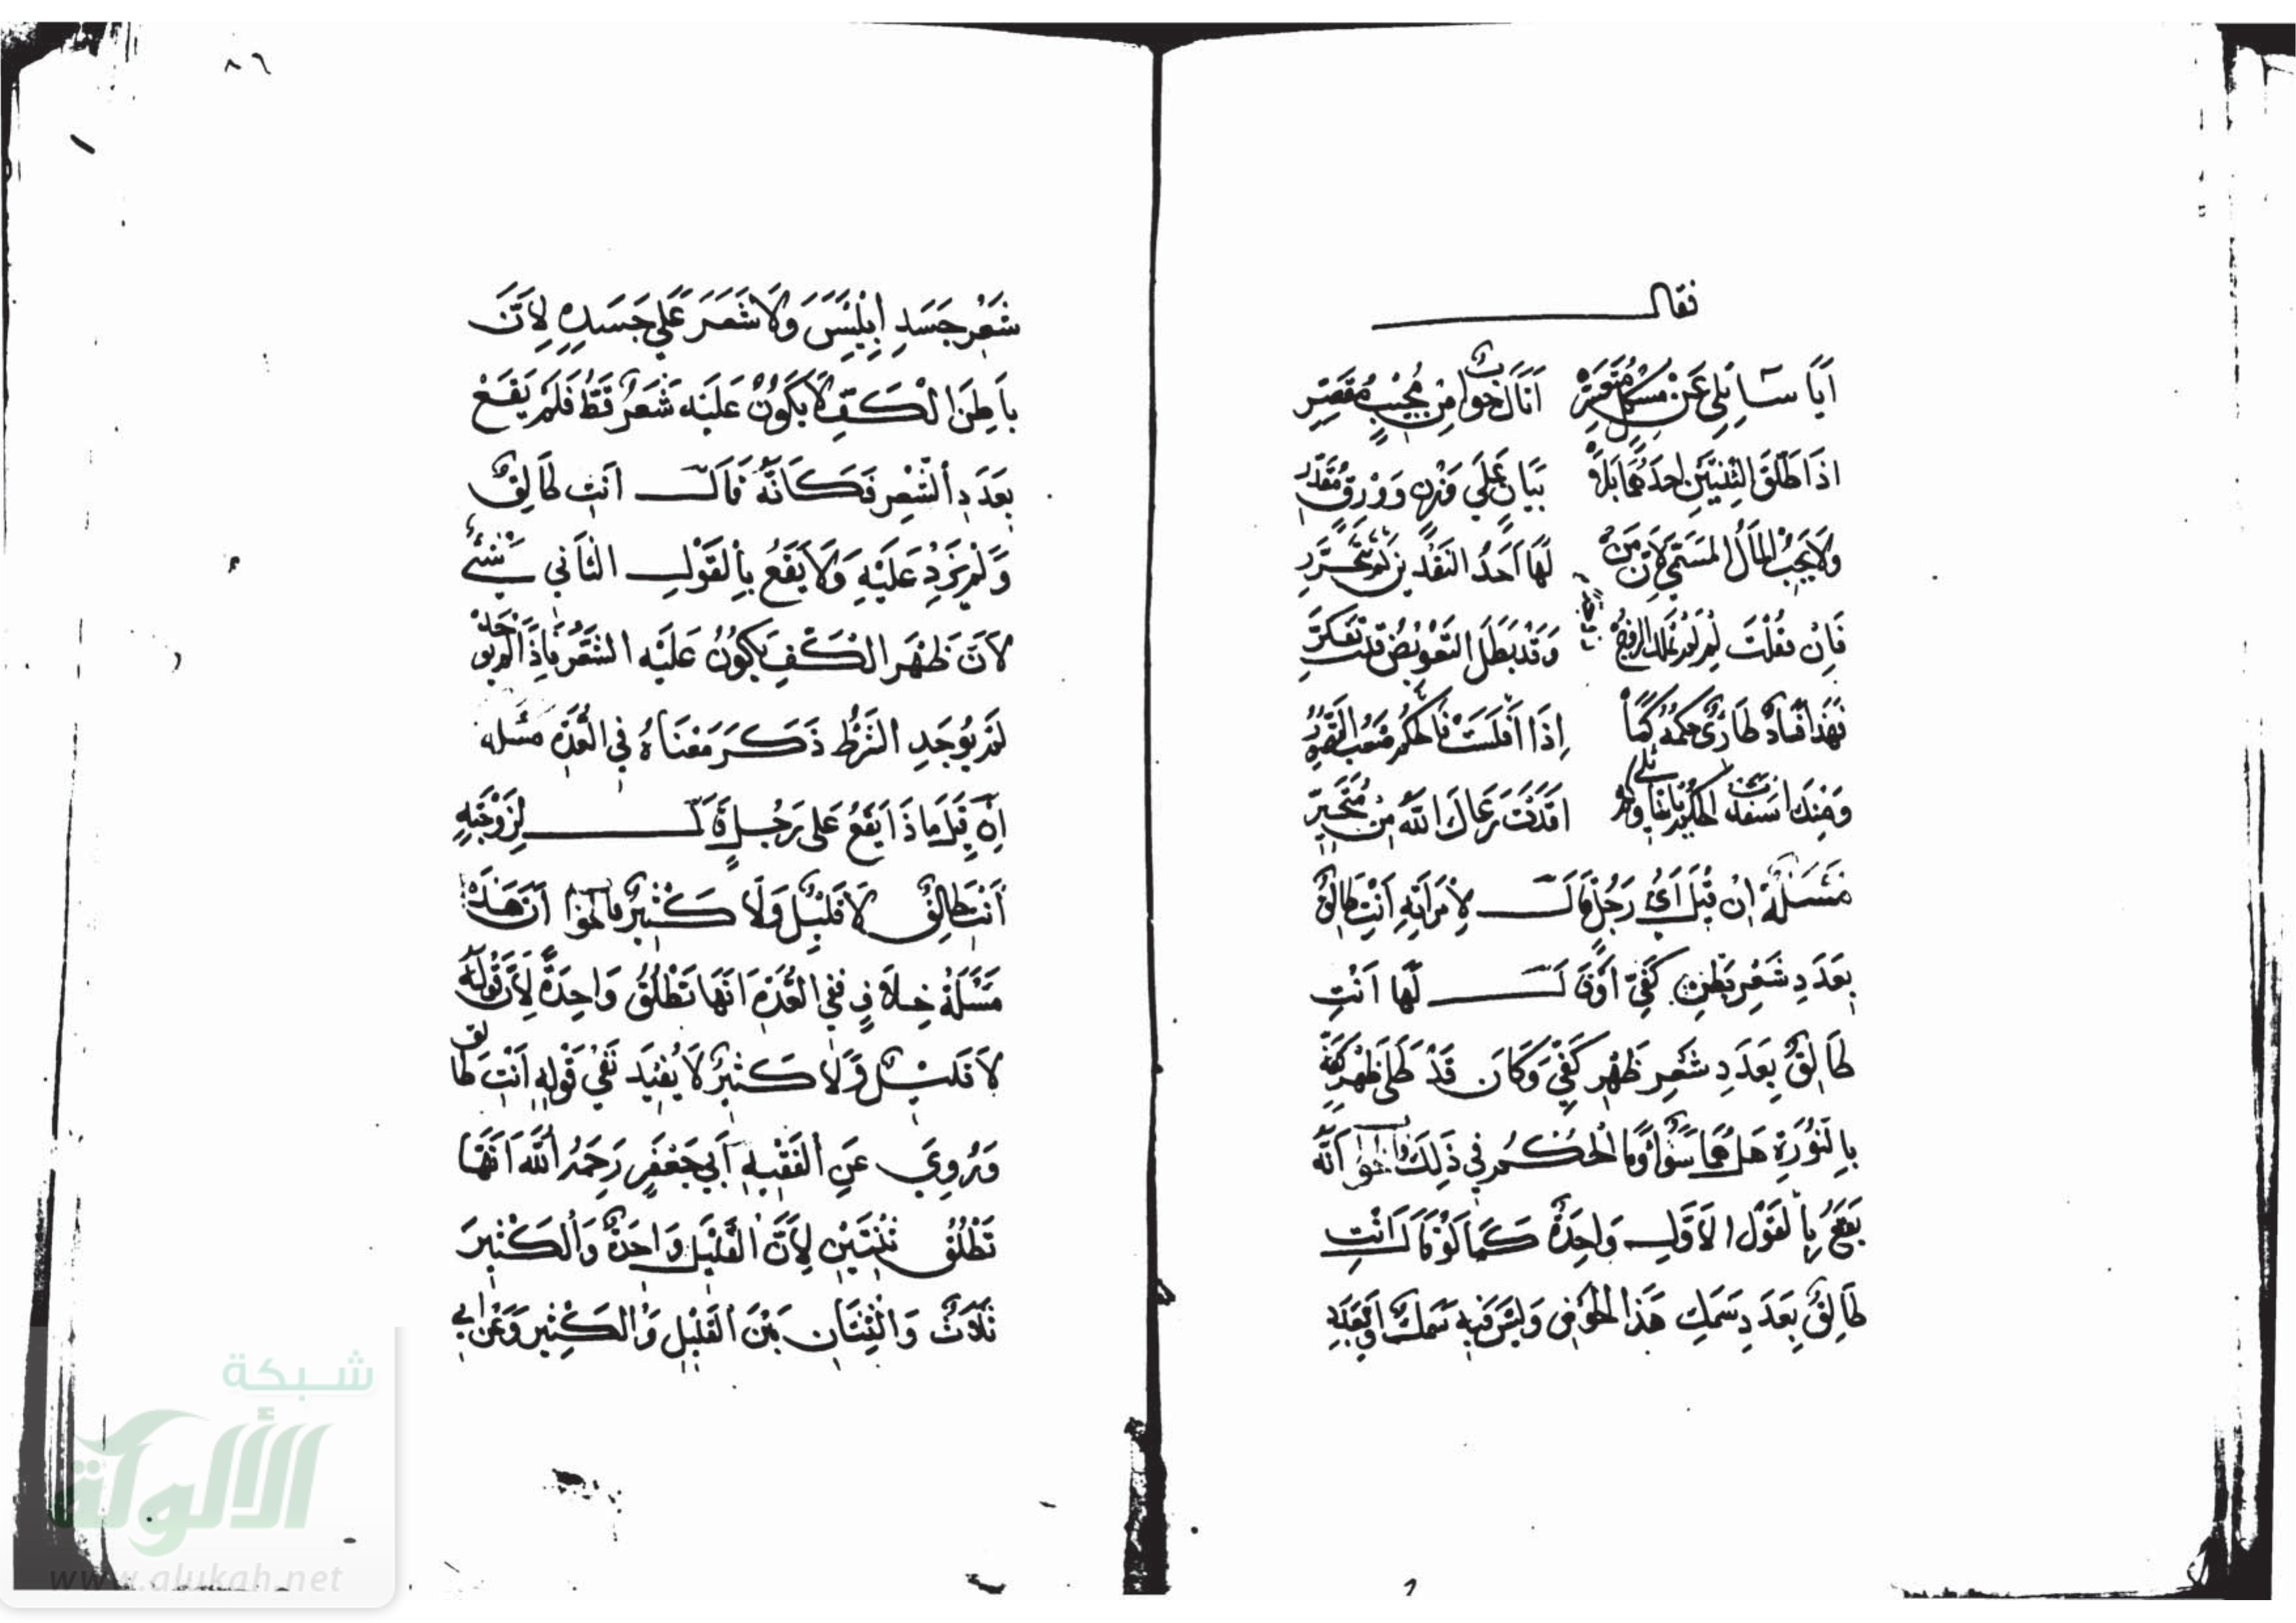 فقال
أَيَا سَائِلِي عَنْ مُشْكِلٍ مُتَعَسِّرِ أَتَاكَ جَوابٌ مِنْ مُجِيبٍ مُقَصِّرِ
اذَا طَلَّقَ الثِّنْتَيْنِ احْدَاهُمَا بَيَانٌ عَلَى وَزْنٍ وَوَرِقٍ مُقَدَّرِ
وَلَا يَجِبُ المَالُ المُسَمَّى لِأَنَّ مَنْ لَهَا أَحَدُ النَقْدَيْنِ لَمْ تَتَحَرَّرِ
فَإِنْ قُلْتَ لِمْ لَمْ وَقَدْ بَطَلَ التَّعْوِيضُ قُلْتُ تَفَكَّرِ
فَهَذَا فَسَادٌ طَارِئٌ حُكْمُهُ كَمَا إِذَا أَفْلَسَتْ فَالْحُكْمُ صَعْبُ التَّصَوُّرِ
وَمِنْكَ اسْتَفَدْتُ الحُكْمَ أَفَدْتَ رَعَاكَ اللَّهُ مِنْ مُتَحَيِّرِ
مَسْئَلَةٌ إنْ قِيلَ أَيُّ رَجُلٍ قَالَ لِامْرَأَتِهِ أَنْتِ طَالِقٌ
بِعَدَدِ شَعْرِ بَطْنِ كَفِّي أَوْ قَالَ لَهَا أَنْتِ
طَالِقٌ بِعَدَدِ شَعْرِ ظَهْرِ كَفِّي وَكَانَ قَدْ طَلَى ظَهْرَ كَفِّهِ
بِالنُّورَةِ هَلْ هُمَا سَوَاءٌ وَمَا الْحُكْمُ فِي ذَلِكَ فَالجَوابُ أَنَّهُ
يَقَعُ بِالْقَوْلِ الْأَوَّلِ وَاحِدَةٌ كَمَا لَوْ قَالَ أَنْتِ
طَالِقٌ بِعَدَدِ سَمَكِ هَذَا الْحَوْضِ وَلَيْسَ فِيهِ سَمَكٌ أَوْ بِعَدَدِ
٨٦
شَعْرِ جَسَدِ إِبْلِيسَ وَلَا شَعْرَ عَلَى جَسَدِهِ لِأَنَّ
بَاطِنَ الْكَفِّ لَا يَكُونُ عَلَيْهِ شَعَرٌ قَطُّ فَلَمْ يَقَعْ
بِعَدَدِ الشَّعْرِ فَكَأَنَّهُ قَالَ أَنْتِ طَالِقٌ
وَلَمْ يَزِدْ عَلَيْهِ وَلَا يَقَعُ بِالْقَوْلِ الثَّانِي شَيْءٌ
لِأَنَّ ظَهْرَ الْكَفِّ يَكُونُ عَلَيْهِ الشَّعَرُ فَإِذَا لَمْ يُوجَدْ
لَمْ يُوجَدِ الشَّرْطُ ذَكَرَ مَعْنَاهُ فِي الْعُدَّةِ مَسْئَلَة
إِنْ قِيلَ مَا ذَا يَقَعُ عَلَى رَجُلٍ قَالَ لِزَوْجَتِهِ
أَنْتِ طَالِقٌ لَا قَلِيْلٌ وَلَا كَثِيْرٌ فالجواب أَنَّ هَذِهْ
مَسْئَلَةُ خِلَافٍ فَفِي الْعُدَّةِ أَنَّهَا تَطْلُقُ وَاحِدَةً لِأَنَّ قَوْلَهُ
لَا قَلِيْلٌ وَلَا كَثِيرٌ لَا يُفِيدُ نَفْيَ قَوْلِهِ أَنْتِ طَالق
وَرُوِيَ عَنِ الْفَقِيهِ أَبِي جَعْفَرٍ رَحِمَهُ اللَّهُ أَنَّهَا
تَطْلُقُ ثِنْتَيْنِ لِأَنَّ الْقَلِيْلَ وَاحِدَةٌ وَالْكَثِيرَ
ثَلَاثٌ وَالثِّنْتَانِ بَيْنَ الْقَلِيْلِ وَالْكَثِيْرِ وَعَنْ أَبِي
شبكة
الألوكة
www.alukah.net